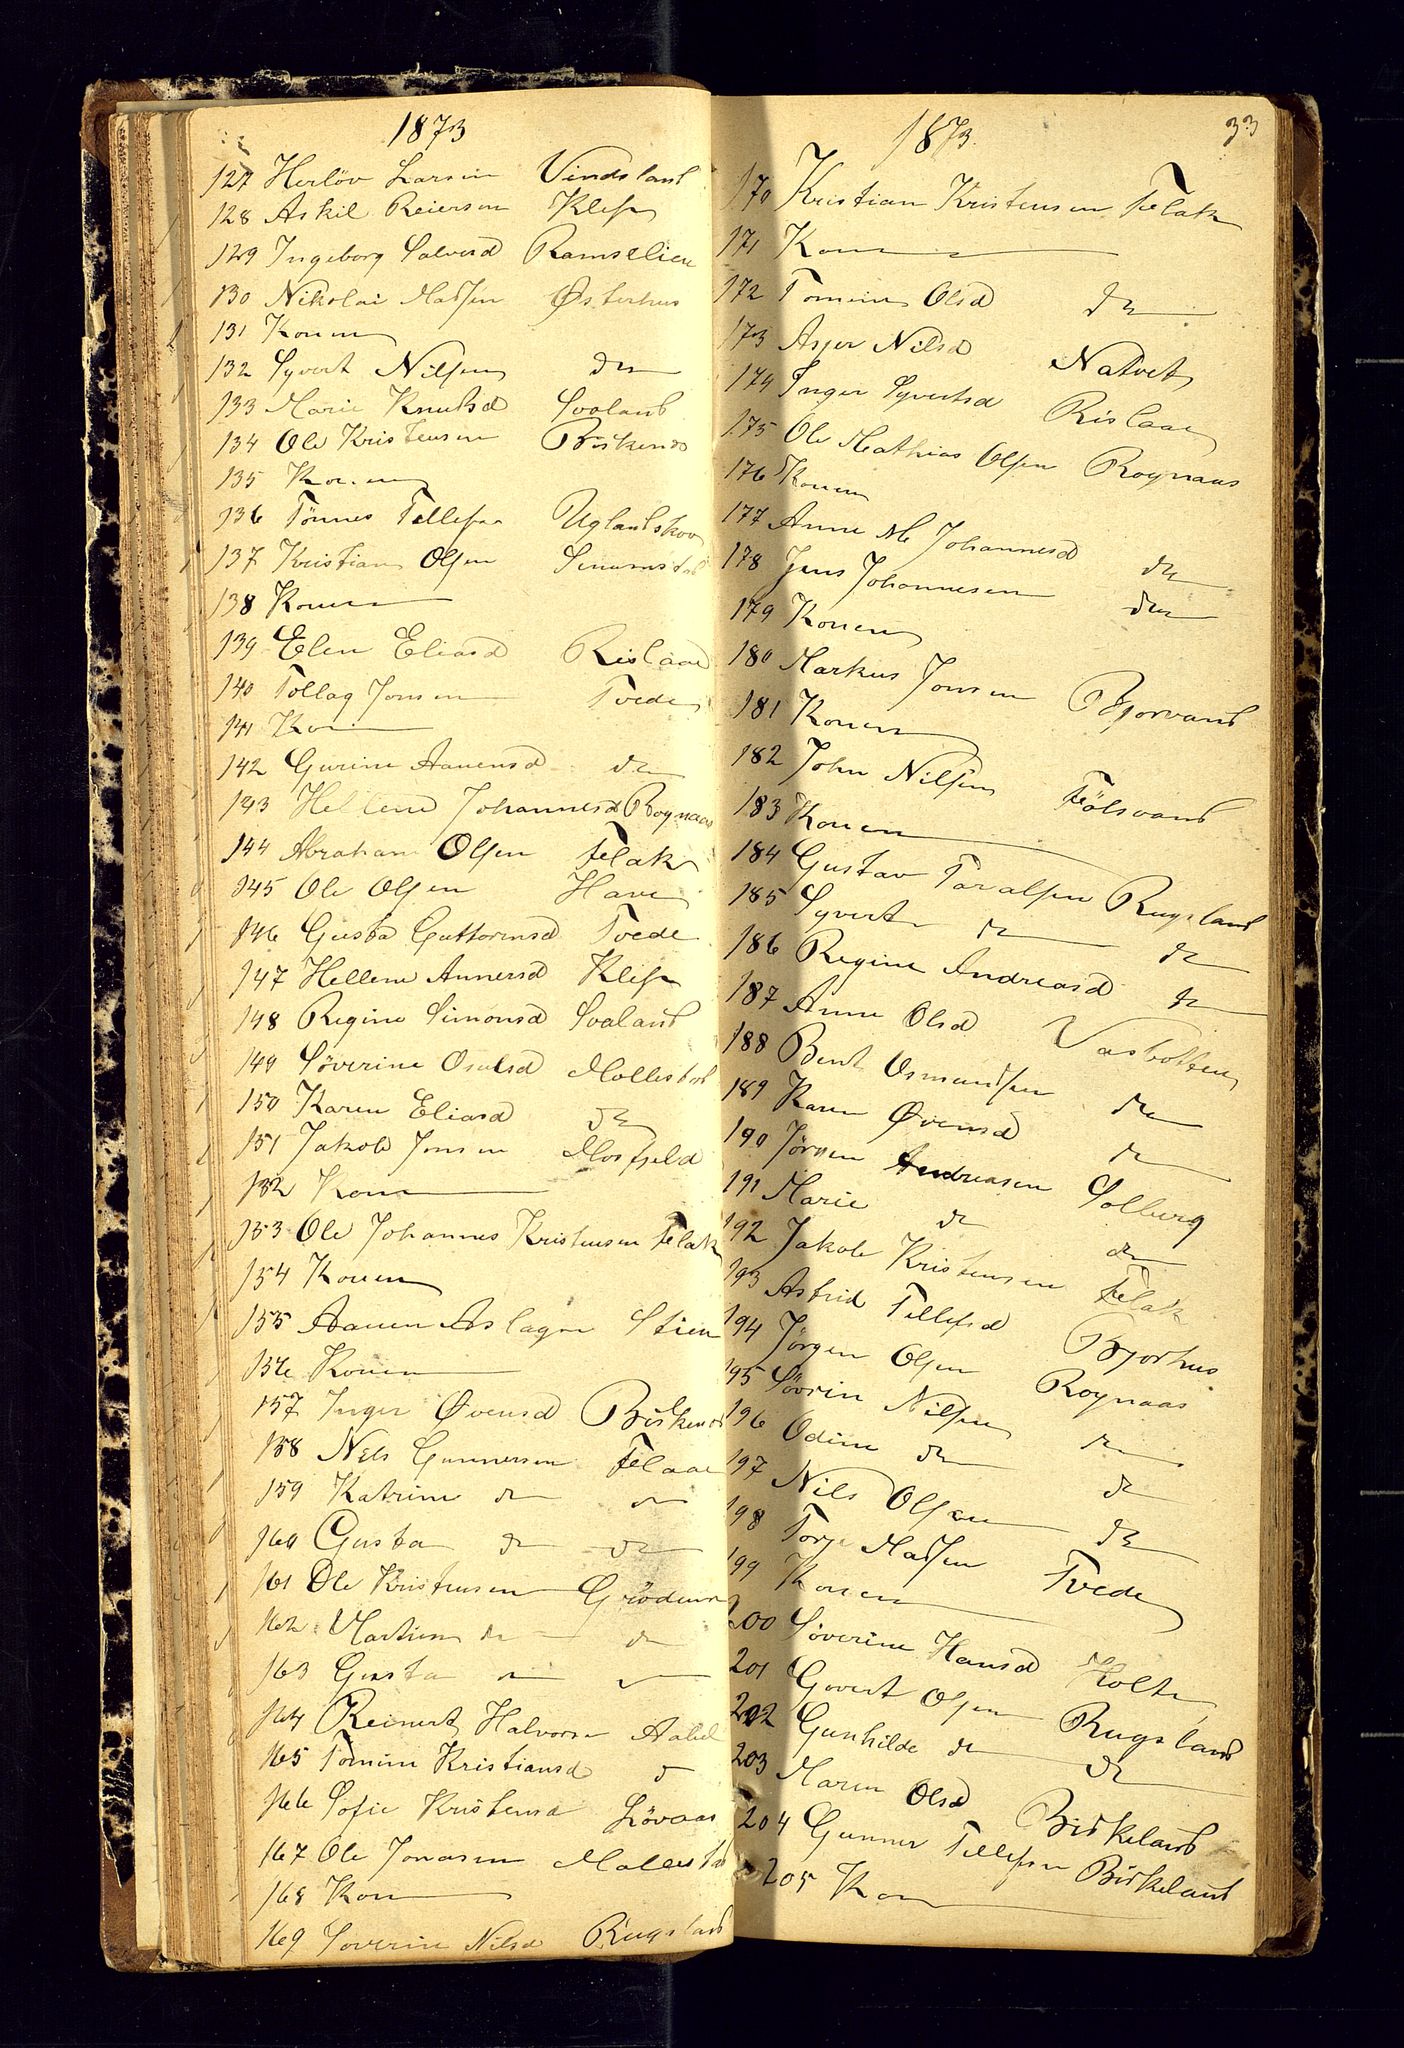 1873
127 Herlöv Larsen Vindsland
128 Askil Reiersen Klep
129 Ingeborg Salvesd Ramselien
130 Nikolai Madsen Østerhus
131 Konen
132 Syvert Nilsen do
133 Marie Knutsd Svaland
134 Ole Kristensen
135 Konen
136 Tønnes Tellefsen Uglandskov
137 Kristian Olsen
138 Konen
139 Elen Eliasd Rislaae
140 Tollag Jonsen Tvede
141 Kon
142 Gurine Aanensd do
143 Hellene Johannesd Roynaas
144 Abraham Olsen Flak
145 Ole Olsen Have
146 Gusta Guttormsd Tvede
147 Hellene Annersd Klep
148 Regine Simonsd Svaland
149 Söverine Osulsd Mollestad
150 Karen Eliasd do
151 Jakob Jonsen Mosfjeld
152 Kon
153 Ole Johannes Kristensen Flak
154 Konen
155 Aanen Aslagsen Stien
156 Konen
157 Inger Øvensd
158 Nels Gunnersen Flaae
159 Katrine do do
160 Gusta do do
161 Ole Kristensen
162 Martin do do
163 Gusta do do
164 Reinert Halvorsen
165 Tomine Kristiansd do
166 Sofie Kristensd Lövaas
167 Ole Jonasen Mollestad
168 Kon
169 Soverine Nilsd Rugsland
1873. 33
170 Kristian Kristensen Flak
171 Kon
172 Tomine Olsd do
173 Asjer Nilsd Natvet
174 Inger Syvertsd Rislaae
175 Ole Mathias Olsen Roynaas
176 Konen
177 Anne M Johannesd do
178 Jens Johannesen do
179 Konen
180 Markus Jonsen Bjorvand
181 Konen
182 John Nilsen Fölsvand
183 Konen
184 Gustav Taralsen Rugsland
185 Syvert do do
186 Regine Andreasd do
187 Anne Olsd Vasbotten
188 Bent Osmundsen do
189 Karen Øvensd do
190 Jörgen Andreasen Solberg
191 Marie do do
192 Jakob Kristensen Flak
193 Astrid Tellefsd Bjorhus
194 Jörgen Olsen Roynaas
195 Sövrin Nilsen do
196 Odine do do
197 Nils Olsen do
198 Torje Madsen Tvede
199 Konen
200 Söverine Hansd Holte
201 Govert Olsen Rugsland
202 Gunhilde do do
203 Maren Olsd Birkeland
204 Gunner Tellefsen Birkeland
205 Kon